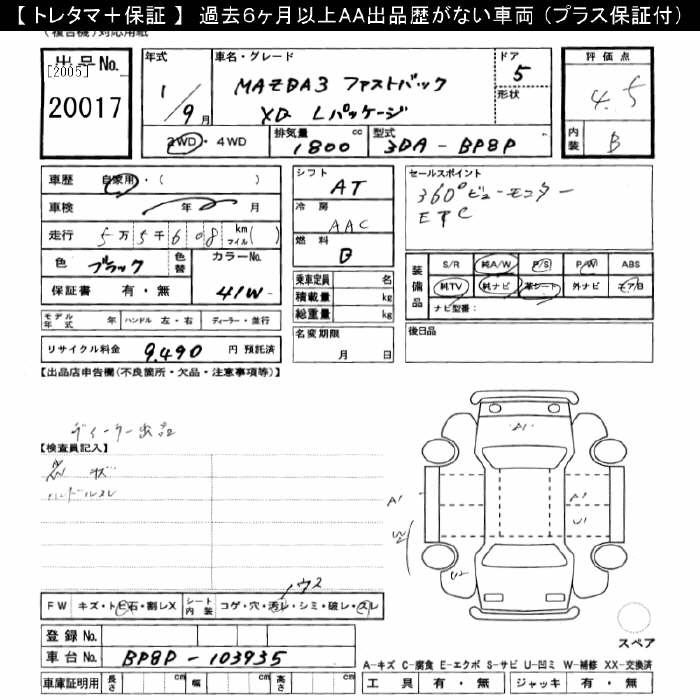 【 トレタマ＋保証 】 過去6ヶ月以上AA出品歴がない車両 (プラス保証付)
(複合機)対応用紙
出品No.
[2005]
20017
年式
1/9月
車名・グレード
MAZDA3 ファストバック
XD Lパッケージ
ドア
5
形状
評価点
4.5
内装
B
2WD・4WD
排気量 1800 cc
型式 3DA - BP8P
車歴 自家用・( )
車検 年 月
走行 5万5千608 km マイル( )
色 ブラック
色替
カラーNo. 41W-
保証書 有・無
シフト
AT
冷房
AAC
燃料
乗車定員 名
積載量 kg
総重量 kg
名変期限
月 日
セールスポイント
360°ビューモニター
ETC
装備品
S/R 純A/W P/S P/W ABS
純TV 純ナビ 革シート 外ナビ エアB
ナビ型番:
後日品
モデル年式 年 ハンドル 左・右 ディーラー・並行
リサイクル料金 9,490 円 預託済
【出品店申告欄(不良箇所・欠品・注意事項等)】
ディーラー出品
【検査員記入】
ハンドルスレ
A1
A1
A1
U1
W2
U2
FW キズ・トビ石・割レX
シート内装 コゲ・穴・汚レ・シミ・破レ・スレ
ウス
登録No.
車台No. BP8P-103935
車庫証明用 長さ cm 幅 cm 高さ cm
スペア
A-キズ C-腐食 E-エクボ S-サビ U-凹ミ W-補修 XX-交換済
工具 有・無 ジャッキ 有・無